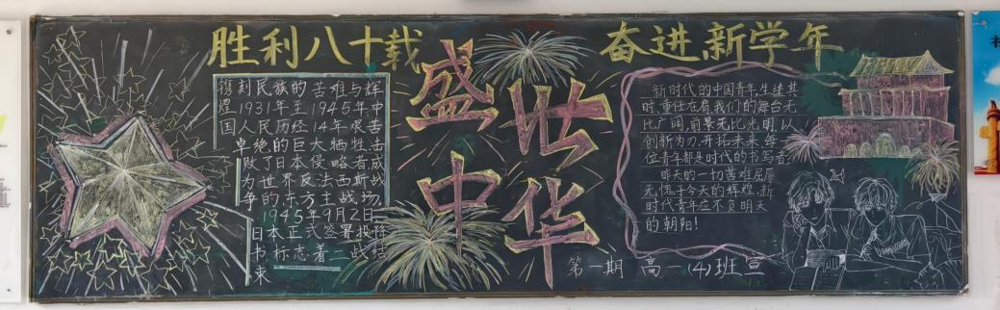 胜利八十载
镌刻民族的苦难与辉
煌1931年至1945年,中
国人民历经14年艰苦
卓绝的巨大牺牲,击
败了日本侵略者,成
为世界反法西斯战
争的东方主战场,
1945年9月2日,
日本正式签署投降
书,标志着二战结
束
盛世
中华
奋进新学年
新时代的中国青年生逢其
时,重任在肩,我们的舞台无
比广阔,前景无比光明,以
创新为刃,开拓未来,每
位青年都是时代的书写者,
昨天的一切苦难屈辱
无愧于今天的辉煌,新
时代青年应不负明天
的朝阳!
第一期 高一(4)班宣